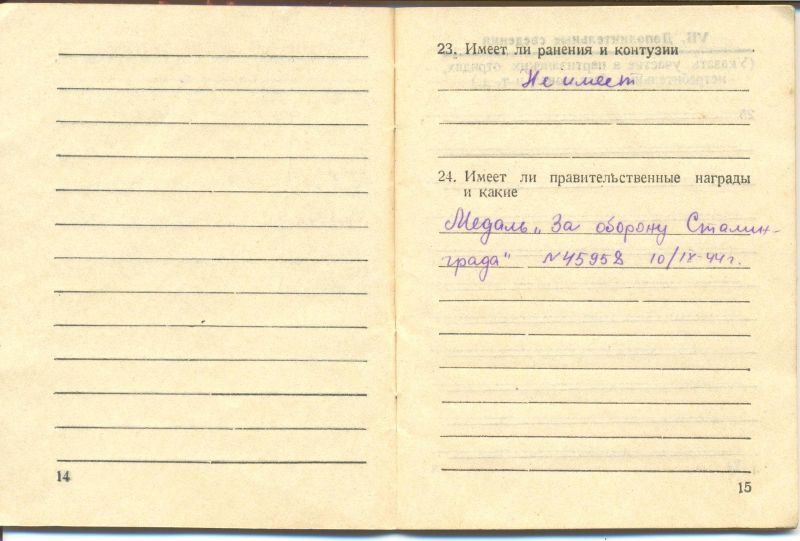 14
23. Имеет ли ранения и контузии
Не имеет
24. Имеет ли правительственные награды
и какие
Медаль „За оборону Сталин-
града" N45958 10/IX-44г.
15